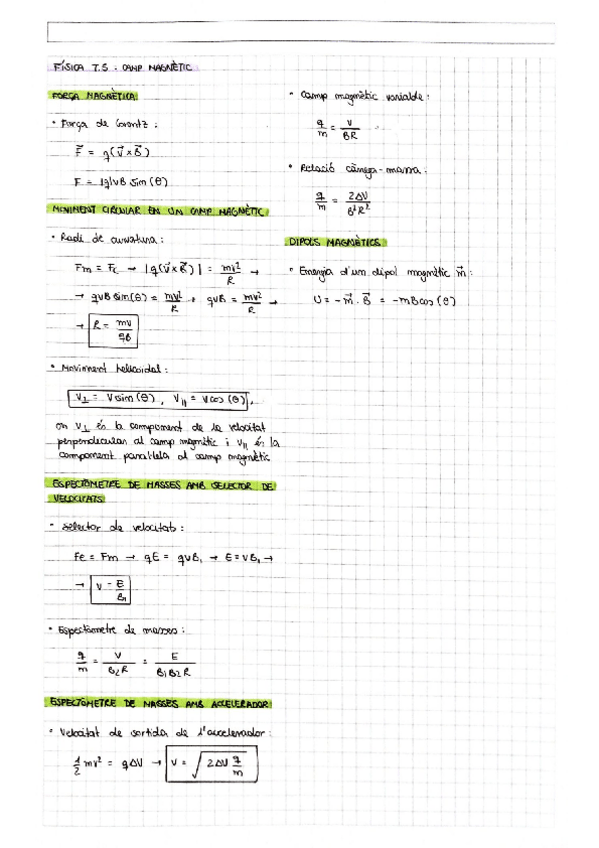 FÍSICA T.5 : CAMP MAGNÈTIC
FORÇA MAGNÈTICA
• Força de Lorentz :
F⃗ = q(v⃗ × B⃗)
F = |q|vB sin(θ)
MOVIMENT CIRCULAR EN UN CAMP MAGNÈTIC
• Radi de curvatura :
Fm = Fc → |q(v⃗ × B⃗)| = mv²/R →
→ qvB sin(θ) = mv²/R , qvB = mv²/R →
→ R = mv/qB
• Moviment helicoidal :
V⊥ = V sin(θ) , V∥ = V cos(θ) ,
on V⊥ és la component de la velocitat
perpendicular al camp magnètic i V∥ és la
component paral·lela al camp magnètic
ESPECTÒMETRE DE MASSES AMB SELECTOR DE
VELOCITATS
• Selector de velocitats :
Fe = Fm → qE = qvB₁ → E = vB₁ →
→ V = E/B₁
• Espectòmetre de masses :
q/m = V/B₂R = E/B₁B₂R
ESPECTÒMETRE DE MASSES AMB ACCELERADOR
• Velocitat de sortida de l'accelerador :
1/2 mv² = qΔV → V = √(2ΔV q/m)
• Camp magnètic variable :
q/m = V/BR
• Relació càrrega-massa :
q/m = 2ΔV/B²R²
DIPOLS MAGNÈTICS
• Energia d'un dipol magnètic m⃗ :
U = -m⃗ · B⃗ = -mB cos(θ)